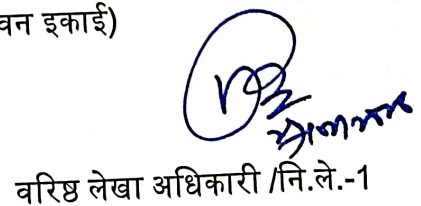 वन इकाई)
वरिष्ठ लेखा अधिकारी /नि.ले.-1